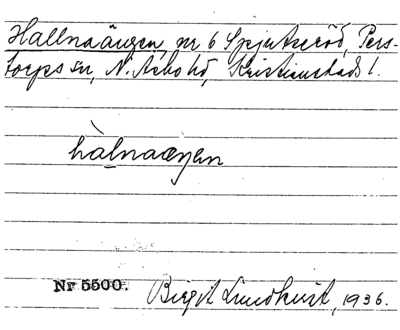 Hallnaängen, nr 6 Spjutseröd, Pers-
torps sn, N. Åsbo hd, Kristianstads l.
hàlnaæŋen
Nr 5500. Birgit Lundkvist, 1936.